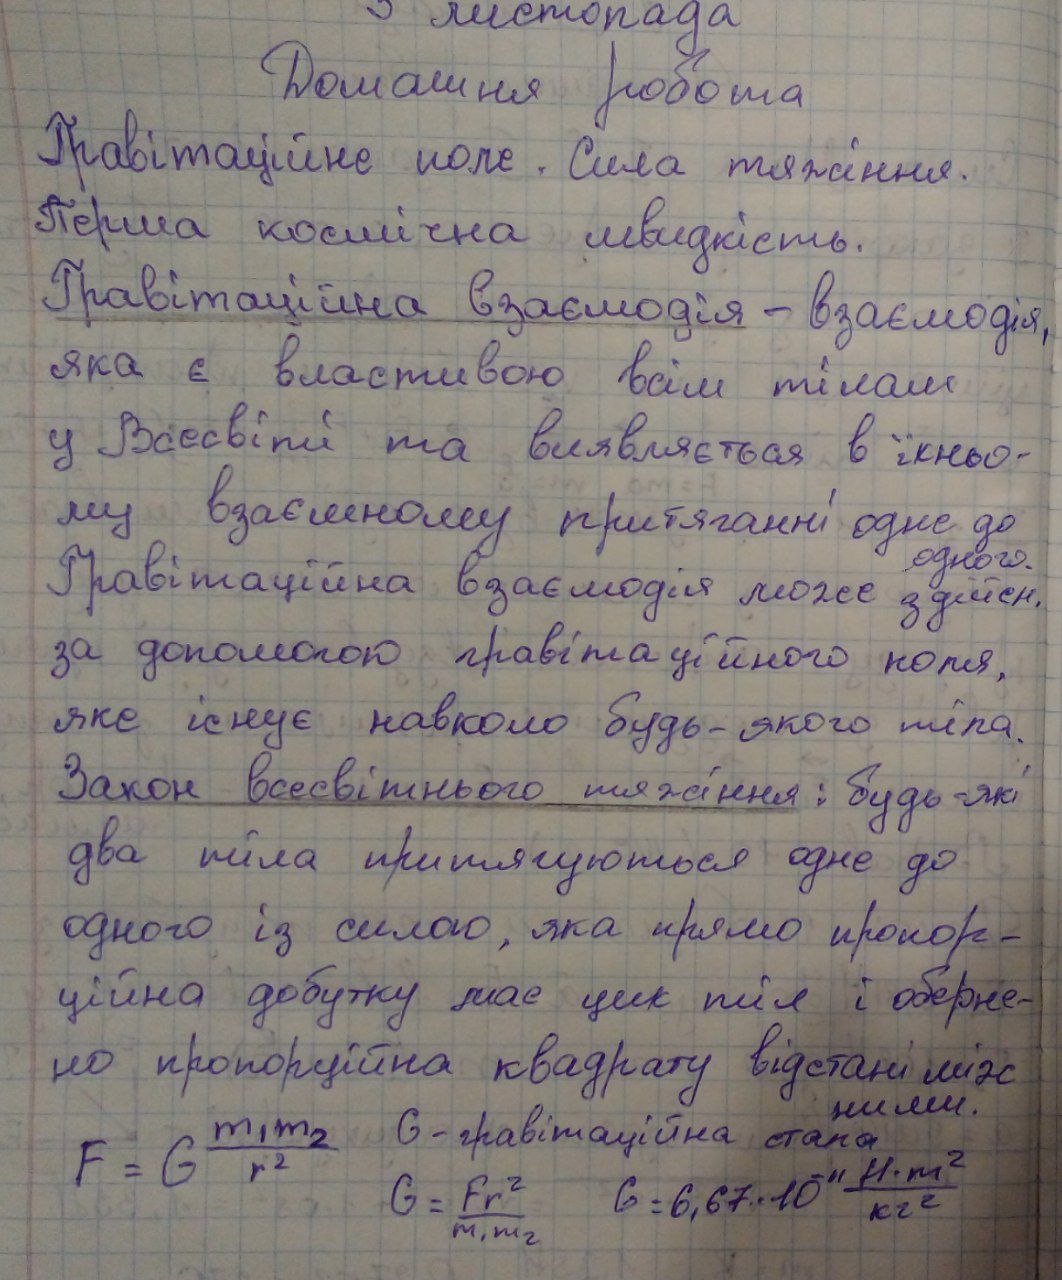 5 листопада
Домашня робота
Гравітаційне поле. Сила тяжіння.
Перша космічна швидкість.
Гравітаційна взаємодія - взаємодія,
яка є властивою всім тілам
у Всесвіті та виявляється в їхньо-
му взаємному притяганні одне до
одного.
Гравітаційна взаємодія може здійсн.
за допомогою гравітаційного поля,
яке існує навколо будь-якого тіла.
Закон всесвітнього тяжіння: будь-які
два тіла притягуються одне до
одного із силою, яка прямо пропор-
ційна добутку мас цих тіл і оберне-
но пропорційна квадрату відстані між
ними.
F = G m₁m₂/r² G - гравітаційна стала
G = Fr²/m₁m₂ G = 6,67·10⁻¹¹ Н·м²/кг²